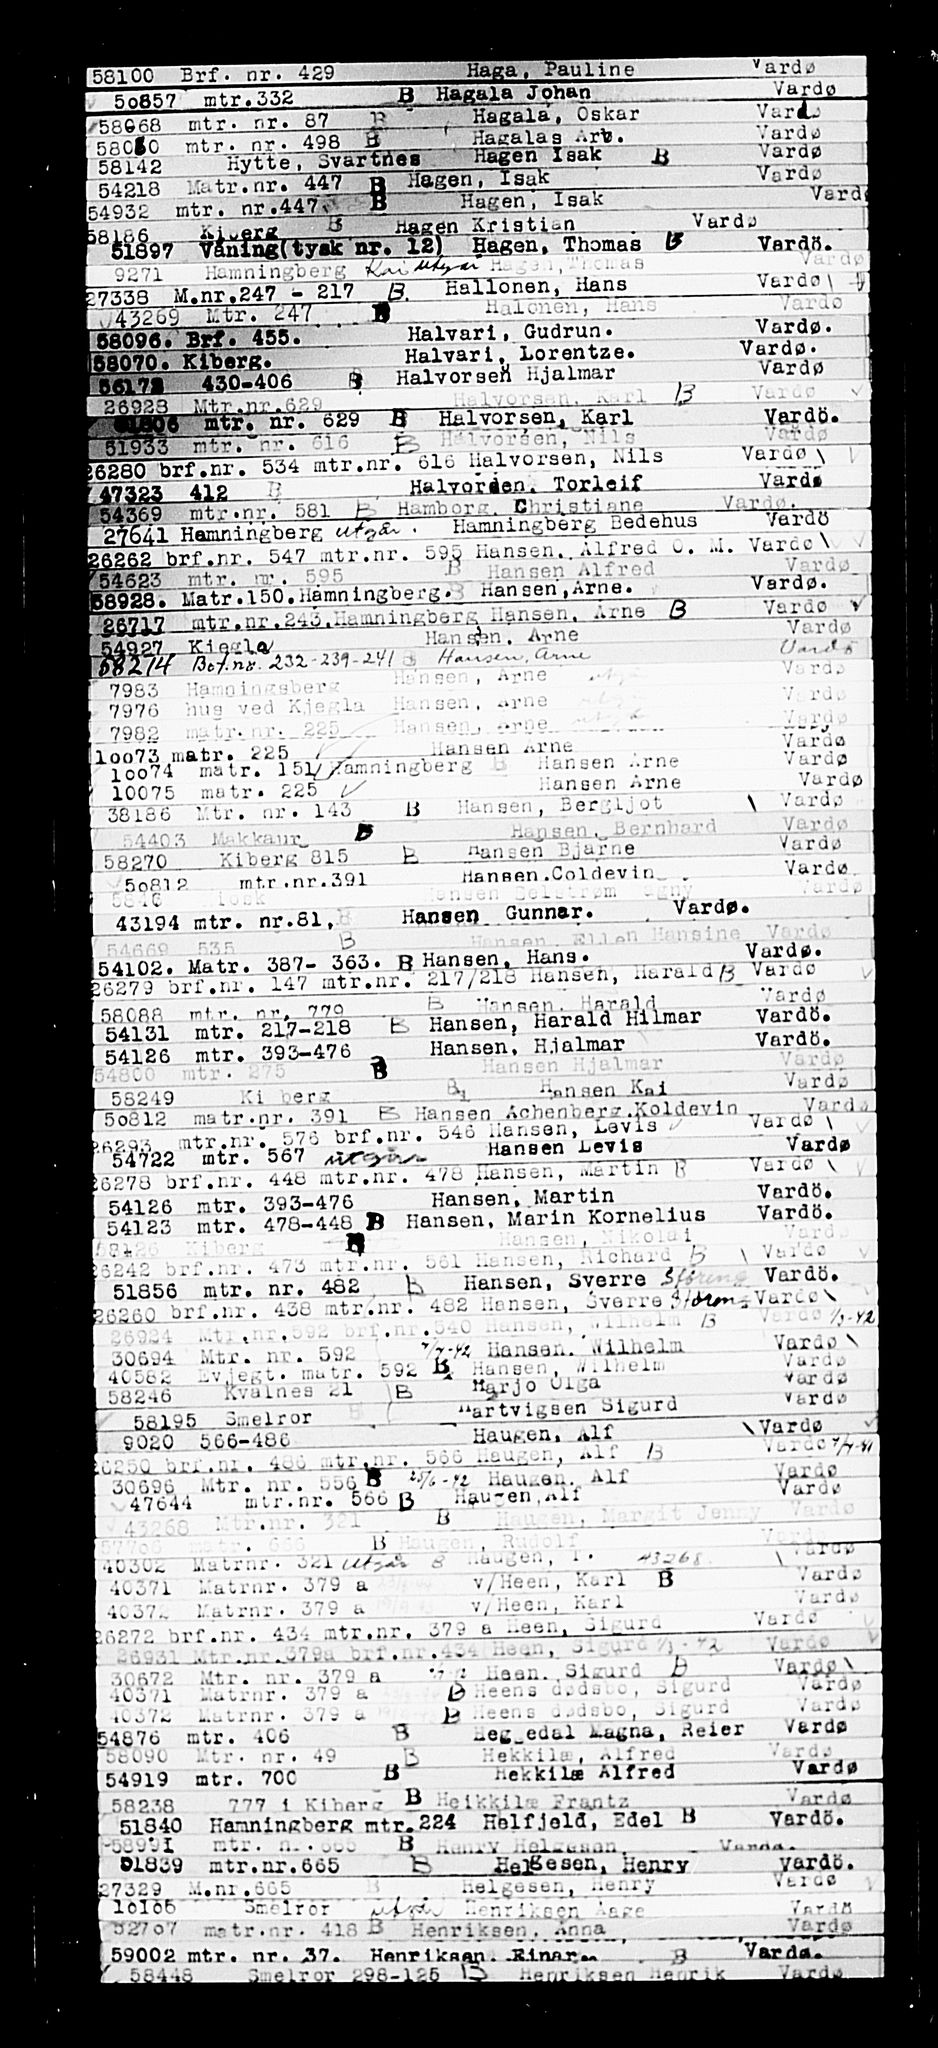 58100 Brf. nr. 429 Haga, Pauline Vardø
50857 mtr.332 B Hagala Johan Vardø
58068 mtr. nr. 87 B Hagala, Oskar Vardø
mtr. nr. 498 B Hagalas Arb. Vardø
58142 Hytte, Svartnes Hagen Isak B Vardø
54218 Matr.nr. 447 B Hagen, Isak Vardø
54932 mtr. nr.447 B Hagen, Isak Vardø
58186 Kiberg B Hagen Kristian Vardø
51897 Våning(tysk nr. 12) Hagen, Thomas B Vardö.
9271 Hamningberg Kai utgår Hagen, Thomas Vardø
27338 M.nr.247 - 217 B. Hallonen, Hans Vardø\
43269 Mtr. 247 B Halonen, Hans Vardø
58096. Brf. 455. Halvari, Gudrun. Vardø.
58070. Kiberg. Halvari, Lorentze. Vardø.
56172 430-406 B Halvorsen Hjalmar Vardø
26928 Mtr.nr.629 Halvorsen, Karl B Vardø
51806 mtr. nr. 629 B Halvorsen, Karl Vardö.
51933 mtr. nr. 616 B Halvorsen, Nils Vardø
26280 brf.nr. 534 mtr.nr. 616 Halvorsen, Nils Vardø \
47323 412 B Halvorsen, Torleif Vardø
54369 mtr.nr. 581 B Hamborg. Christiane Vardø.
27641 Hamningberg utgår. Hamningberg Bedehus Vardö
26262 brf.nr. 547 mtr.nr. 595 Hansen, Alfred O. M. Vardø\
54623 mtr. nr. 595 B Hansen Alfred Vardø
58928. Matr.150.Hamningberg. B Hansen, Arne. Vardø.
26717 mtr.nr.243.Hamningberg Hansen, Arne B Vardø
54927 Kiegla Hansen, Arne Vardø
58214 Bof.no. 232-239-241 B Hansen, Arne Vardø
7983 Hamningsberg Hansen, Arne utgår Vardø
7976 hus ved Kjegla Hansen, Arne utgår Vardø
7982 matr.nr. 225 Hansen, Arne utgår Vardø
10073 matr. 225 Hansen Arne Vardø
10074 matr. 151/ Hamningberg B Hansen Arne Vardø
10075 matr. 225 Hansen Arne Vardø
38186 Mtr. nr. 143 B Hansen, Bergljot \ Vardø
54403 Makkaur B Hansen, Bernhard Vardø
58270 Kiberg 815 B Hansen Bjarne Vardø
50812 mtr.nr.391 Hansen.Coldevin Vardø
Kiosk Hansen Vardø
43194 mtr. nr.81, B Hansen Gunnar. Vardø.
54669 535 B Hansen, Ellen Hansine Vardø
54102. Matr. 387- 363. B Hansen, Hans. Vardø.
26279 brf.nr. 147 mtr.nr. 217/218 Hansen, Harald B Vardø
58088 mtr. nr. 779 B Hansen. Harald Vardø
54131 mtr. 217-218 B Hansen, Harald Hilmar Vardö.
54126 mtr. 393-476 Hansen, Hjalmar Vardö.
54800 mtr. 275 B Hansen Hjalmar Vardø
58249 Kiberg B Hansen Kai Vardø
50812 matr.nr. 391 B Hansen Achenberg.Koldevin Vardø
26293 mtr.nr. 576 brf.nr. 546 Hansen, Levis Vardø \
54722 mtr. 567 utgår Hansen Levis Vardø
26278 brf.nr. 448 mtr.nr. 478 Hansen, Martin B Vardø \
54126 mtr. 393-476 Hansen, Martin Vardö.
54123 mtr. 478-448 B Hansen, Marin Kornelius Vardö.
58126 Kiberg B Hansen, Nikolai Vardø
26242 brf.nr. 473 mtr.nr. 561 Hansen, Richard B \ Vardø
51856 mtr. nr. 482 B Hansen, Sverre Vardö.
26260 brf.nr. 438 mtr.nr. 482 Hansen, Sverre Vardø\
26924 Mtr.nr.592 brf.nr.540 Hansen, Wilhelm B Vardø 1/3-42
30694 Mtr. nr. 592 7/7-42 Hansen. Wilhelm Vardø\
40582 Evjegt. matr. 592 B Hansen, Wilhelm Vardø
58246 Kvalnes 21 B Harjo Olga Vardø
58195 Smelror B Hartvigsen Sigurd Vardø
9020 566-486 Haugen, Alf \Vardø
26250 brf.nr. 486 mtr.nr. 566 Haugen, Alf B Vardø 7/7-41
30696 Mtr. nr. 556 B 25/6-42 Haugen. Alf Vardø
47644 mtr.nr. 566 B Haugen,Alf Vardø
43268 Mtr.nr. 321 B Haugen, Margit Jenny Vardø
57706 matr. 666 B Haugen, Rudolf Vard
40302 Matrnr. 321 utgår B Haugen, T. 43268 \ Vardø
40371 Matrnr. 379 a v/Heen, Karl B Vardø
40372 Matrnr. 379 a v/Heen, Karl Vardø
26272 brf.nr. 434 mtr.nr. 379 a Heen, Sigurd Vardø
26931 Mtr.nr.379a brf.nr.434 Heen, Sigurd 1/3-42 Vardø
30672 Mtr. nr. 379 a Heen. Sigurd B Vardø\
40371 Matrnr. 379 a B Heens dødsbo, Sigurd Vardø
40372 Matrnr. 379 a B Heens dødsbo, Sigurd Vardø
54876 mtr. 406 B Heg edal Magna, Reier Vardø
58090 Mtr. nr. 49 B Hekkilæ, Alfred Vardø
54919 mtr. 700 B Hekkilæ Alfred Vardø
58238 777 i Kiberg B Heikkilæ Frantz Vardø
51840 Hamningberg mtr.224 Helfjeld, Edel B Vardö.
mtr. nr. 665 B Henry Helgesen Vardø.
51839 mtr.nr.665 B Helgesen, Henry Vardö.
27329 M.nr.665 B Helgesen, Henry Vardø
10106 Smelror utgår Henriksen Aage Vardø
52707 matr.nr. 418 B Henriksen, Anna Vardø
59002 mtr. nr. 37. Henriksen. Einar. B Vardø.
58448 Smelror 298-125 B Henriksen Henrik Vardø